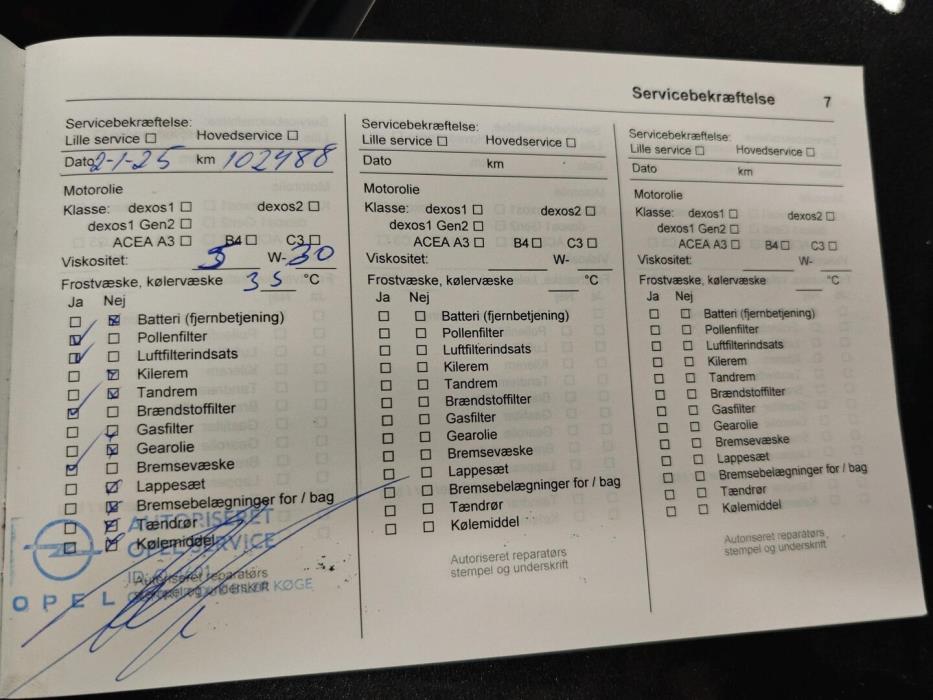 Servicebekræftelse 7
Servicebekræftelse:
Lille service ☐ Hovedservice ☐
Dato 2-1-25 km 102488
Motorolie
Klasse: dexos1 ☐ dexos2 ☐
dexos1 Gen2 ☐
ACEA A3 ☐ B4 ☐ C3 ☐
Viskositet: 5 W-30
Frostvæske, kølervæske 35 °C
Ja Nej
☐ ☒ Batteri (fjernbetjening)
☑ ☐ Pollenfilter
☑ ☐ Luftfilterindsats
☐ ☒ Kilerem
☐ ☒ Tandrem
☑ ☐ Brændstoffilter
☐ ☐ Gasfilter
☐ ☒ Gearolie
☑ ☐ Bremsevæske
☐ ☒ Lappesæt
☐ ☒ Bremsebelægninger for / bag
☐ ☒ Tændrør
☐ ☒ Kølemiddel
AUTORISERET
OPEL SERVICE
Autoriseret reparatørs
stempel og underskrift
KØGE
OPEL
Servicebekræftelse:
Lille service ☐ Hovedservice ☐
Dato km
Motorolie
Klasse: dexos1 ☐ dexos2 ☐
dexos1 Gen2 ☐
ACEA A3 ☐ B4 ☐ C3 ☐
Viskositet: W-
Frostvæske, kølervæske °C
Ja Nej
☐ ☐ Batteri (fjernbetjening)
☐ ☐ Pollenfilter
☐ ☐ Luftfilterindsats
☐ ☐ Kilerem
☐ ☐ Tandrem
☐ ☐ Brændstoffilter
☐ ☐ Gasfilter
☐ ☐ Gearolie
☐ ☐ Bremsevæske
☐ ☐ Lappesæt
☐ ☐ Bremsebelægninger for / bag
☐ ☐ Tændrør
☐ ☐ Kølemiddel
Autoriseret reparatørs
stempel og underskrift
Servicebekræftelse:
Lille service ☐ Hovedservice ☐
Dato km
Motorolie
Klasse: dexos1 ☐ dexos2 ☐
dexos1 Gen2 ☐
ACEA A3 ☐ B4 ☐ C3 ☐
Viskositet: W-
Frostvæske, kølervæske °C
Ja Nej
☐ ☐ Batteri (fjernbetjening)
☐ ☐ Pollenfilter
☐ ☐ Luftfilterindsats
☐ ☐ Kilerem
☐ ☐ Tandrem
☐ ☐ Brændstoffilter
☐ ☐ Gasfilter
☐ ☐ Gearolie
☐ ☐ Bremsevæske
☐ ☐ Lappesæt
☐ ☐ Bremsebelægninger for / bag
☐ ☐ Tændrør
☐ ☐ Kølemiddel
Autoriseret reparatørs
stempel og underskrift